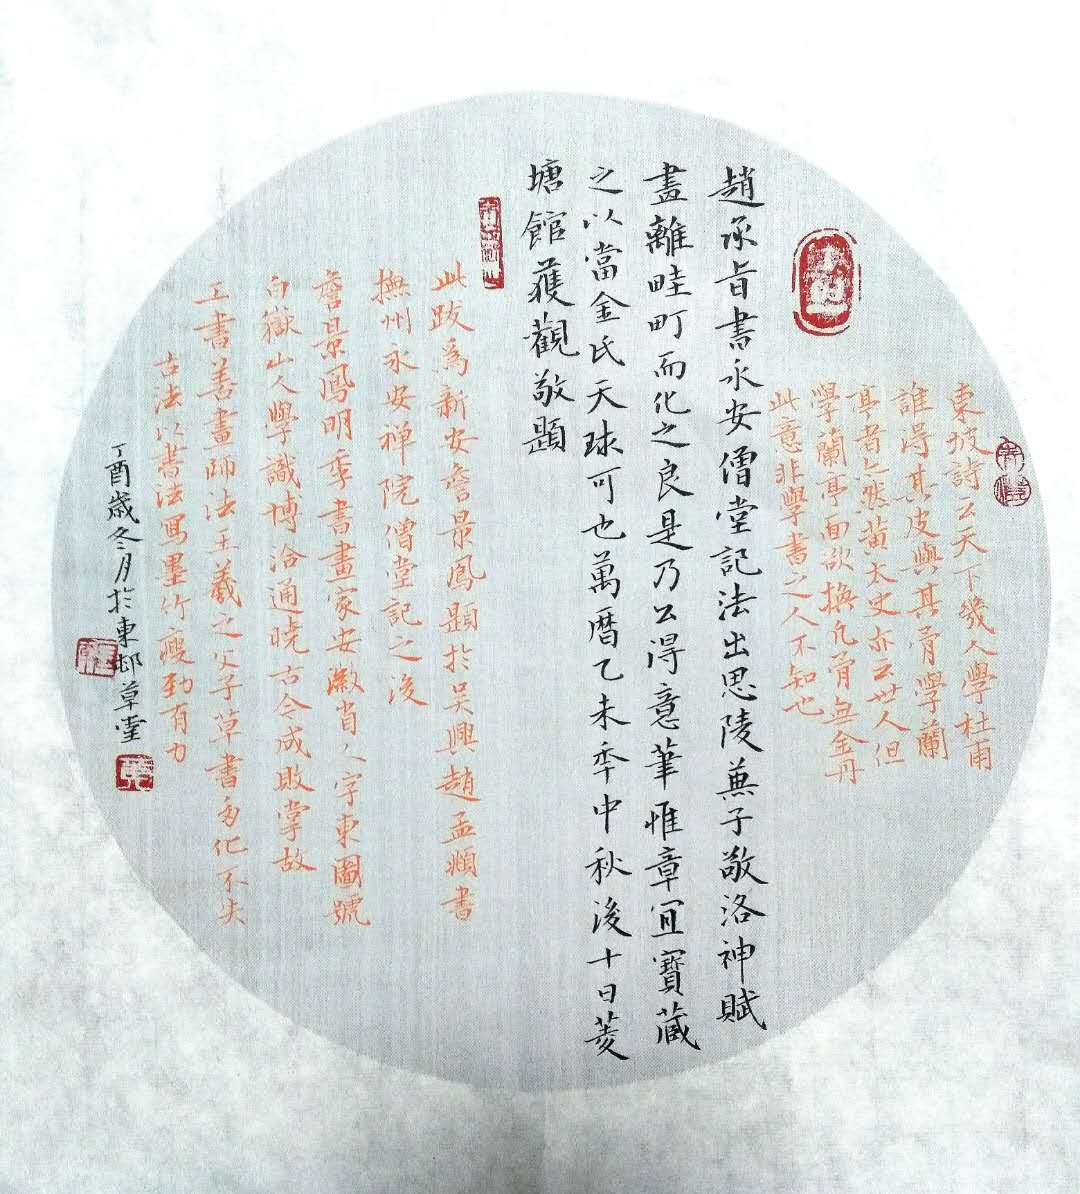 東坡詩云天下幾人學杜甫
誰得其皮與其骨學蘭
亭者亦然黃太史亦云世人但
學蘭亭面欲換凡骨無金丹
此意非學書之人不知也
趙承旨書永安僧堂記法出思陵兼子敬洛神賦
盡離畦町而化之良是乃公得意筆惟章宜寶藏
之以當金氏天球可也萬曆乙未年中秋後十日菱
塘館獲觀敬題
此跋為新安詹景鳳題於吳興趙孟頫書
撫州永安禅院僧堂記之後
詹景鳳明季書畫家安徽省人字東圖號
白嶽山人學識博洽通曉古今成敗掌故
工書善畫師法王羲之父子草書多化不失
古法以書法寫墨竹瘦勁有力
丁酉歲冬月於東邨草堂